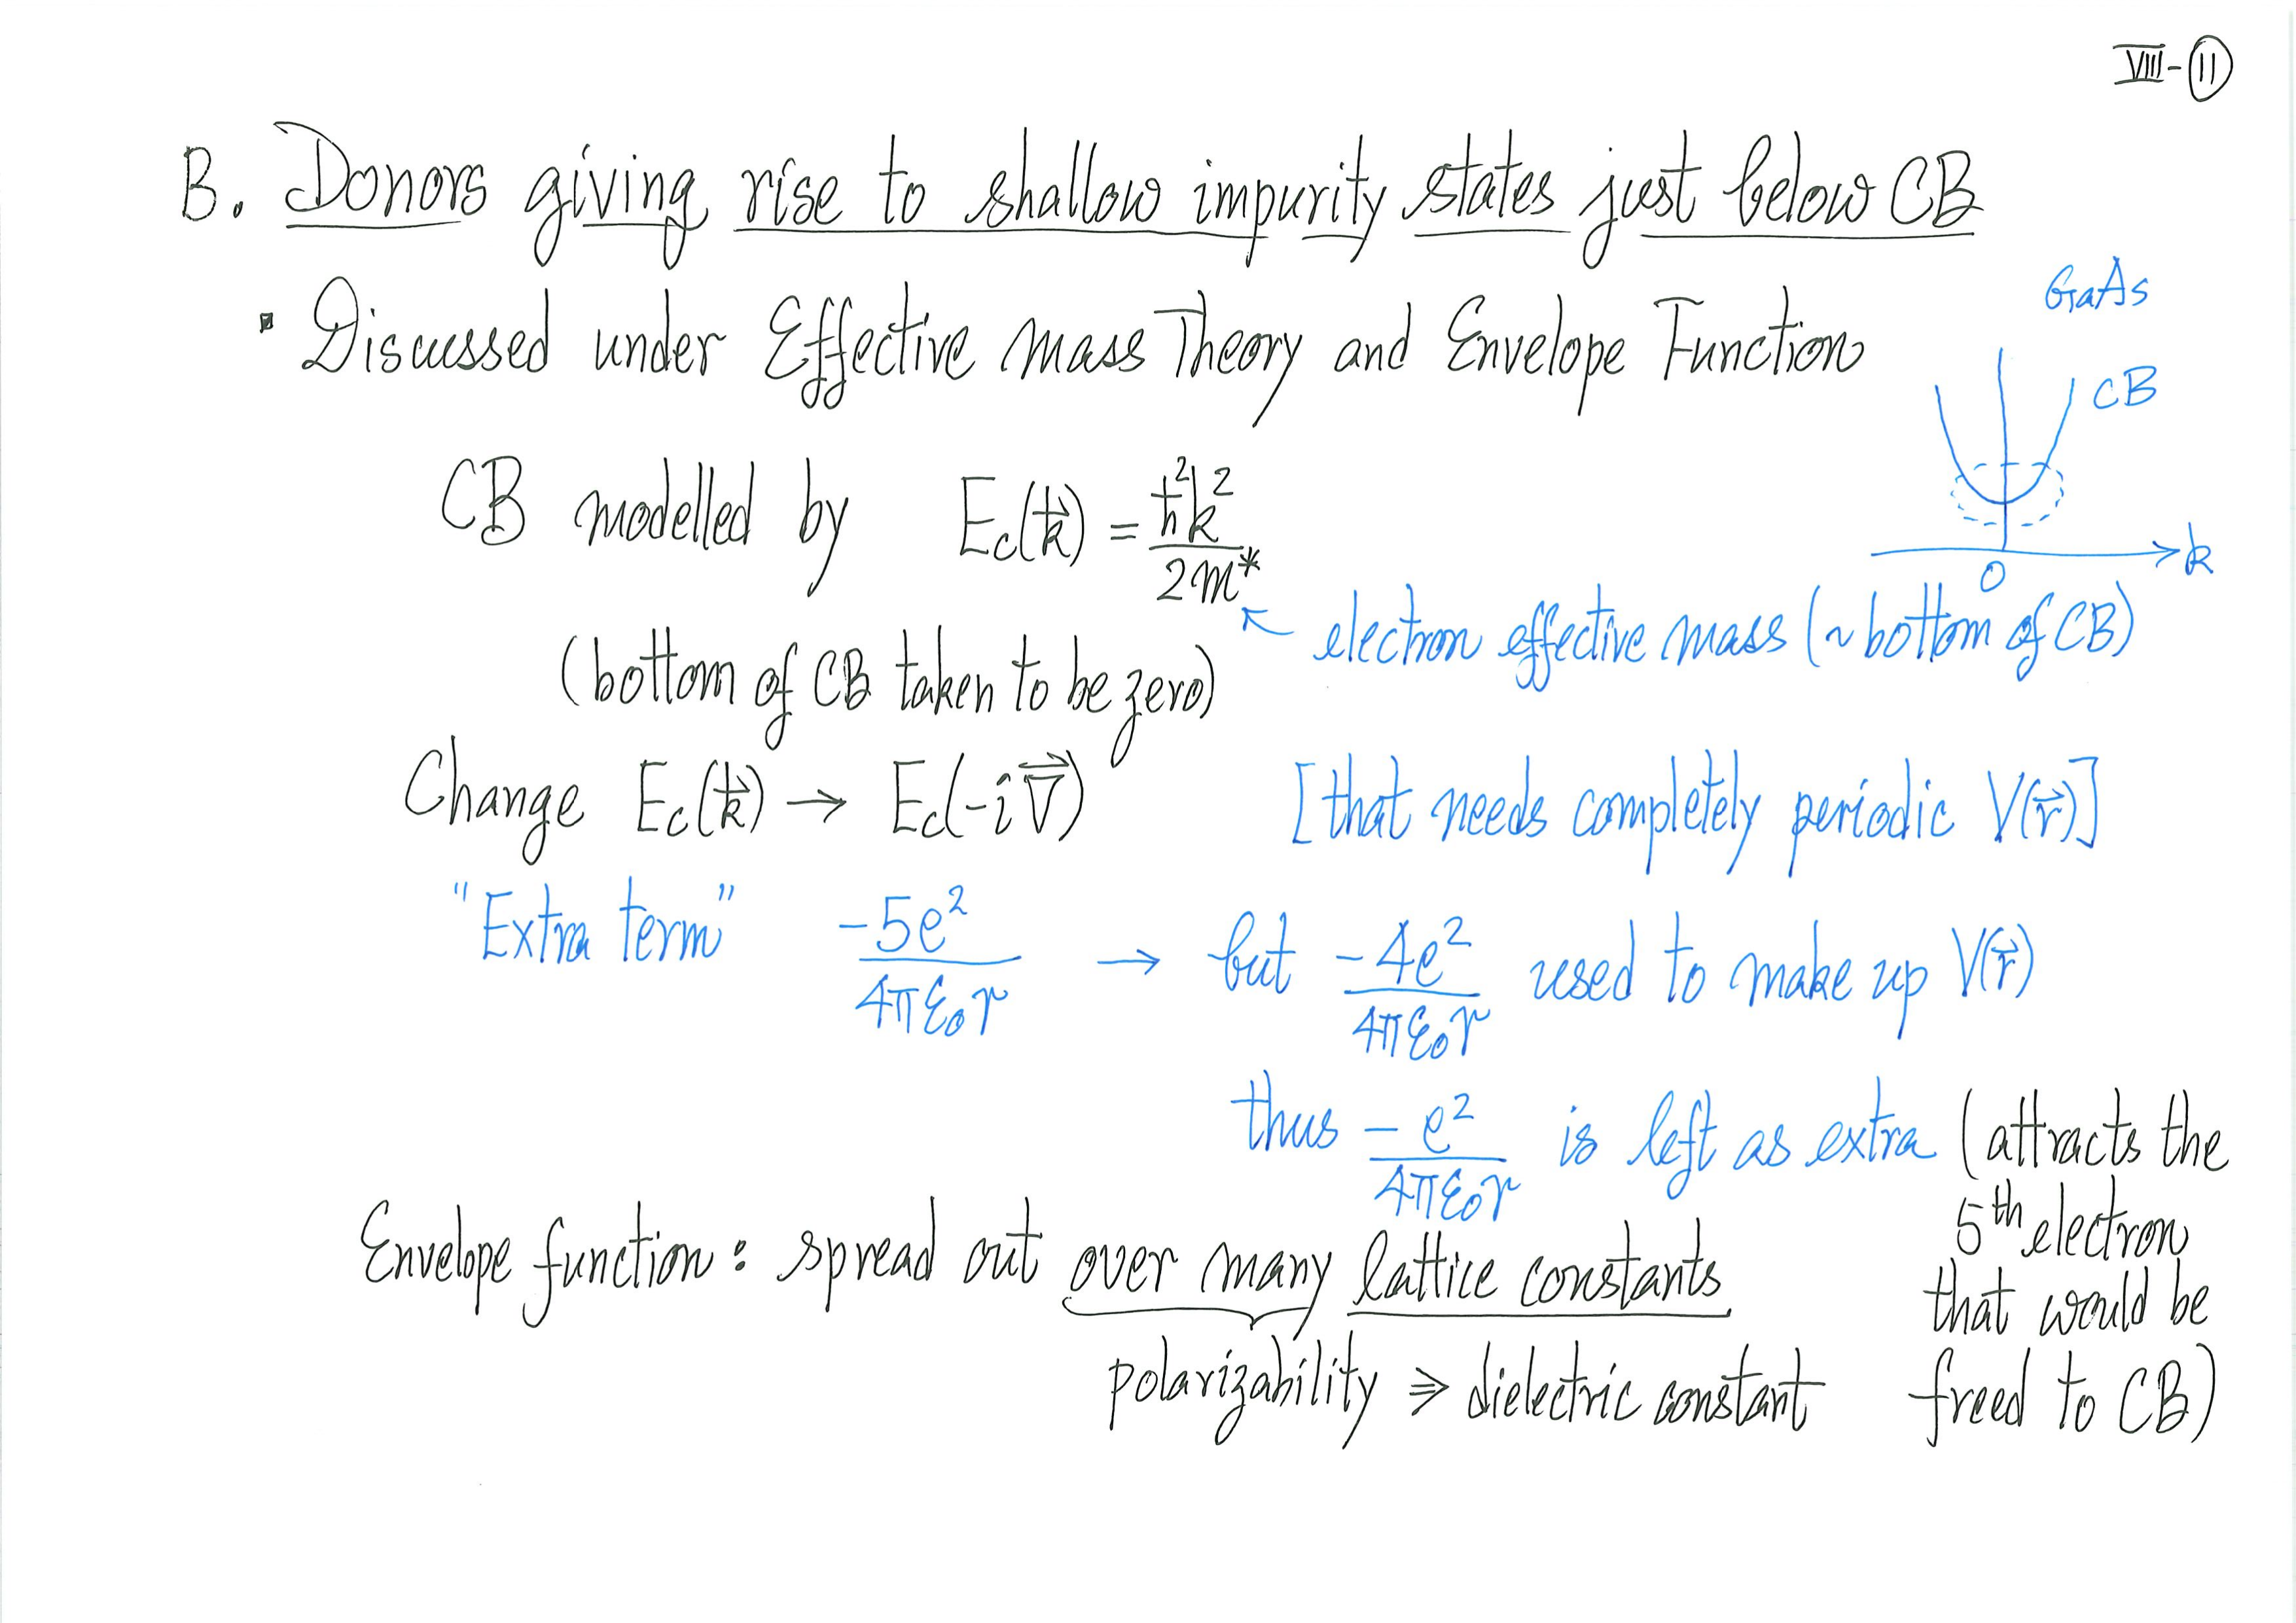 VIII-11
B. Donors giving rise to shallow impurity states just below CB
▪ Discussed under Effective Mass Theory and Envelope Function
GaAs
CB
k
0
CB modelled by E_c(k⃗) = ħ²k²/2m*
↖ electron effective mass (~ bottom of CB)
(bottom of CB taken to be zero)
Change E_c(k⃗) → E_c(-i∇⃗) [that needs completely periodic V(r⃗)]
"Extra term" -5e²/4πε₀r → but -4e²/4πε₀r used to make up V(r⃗)
thus -e²/4πε₀r is left as extra (attracts the
5th electron
that would be
freed to CB)
Envelope function: spread out over many lattice constants
polarizability ⇒ dielectric constant